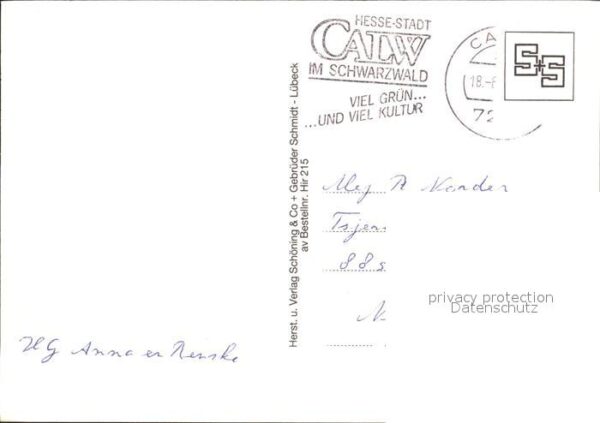 HESSE-STADT
CALW
IM SCHWARZWALD
VIEL GRÜN...
...UND VIEL KULTUR
CA
18.-
72
S+S
Herst. u. Verlag Schöning & Co + Gebrüder Schmidt - Lübeck
av Bestellnr. Hir 215
Mej A Konder
Tsjer
88
N
privacy protection
Datenschutz
HG Anna en Renske